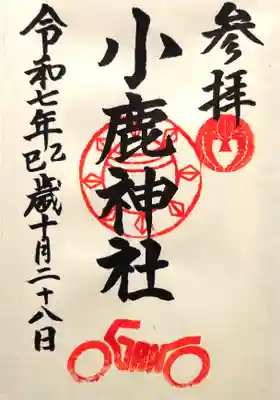 参拝
小鹿神社
令和七年乙巳歳十月二十八日
OGANO